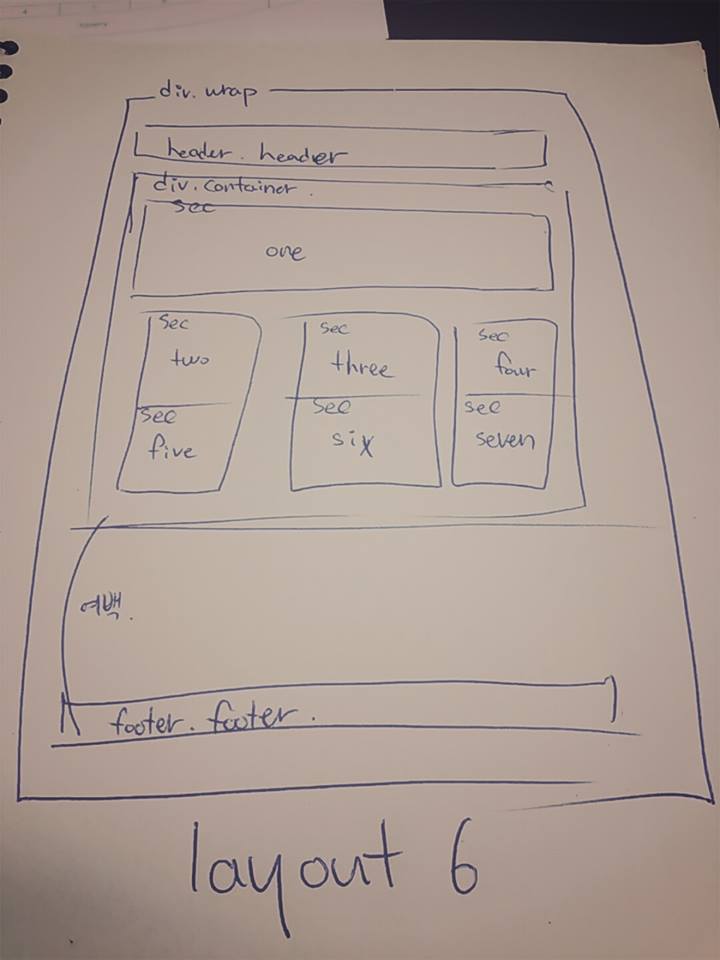 div.wrap
header.header
div.container.
sec
one
sec sec sec
two three four
sec sec sec
five six seven
여백.
footer.footer.
layout 6